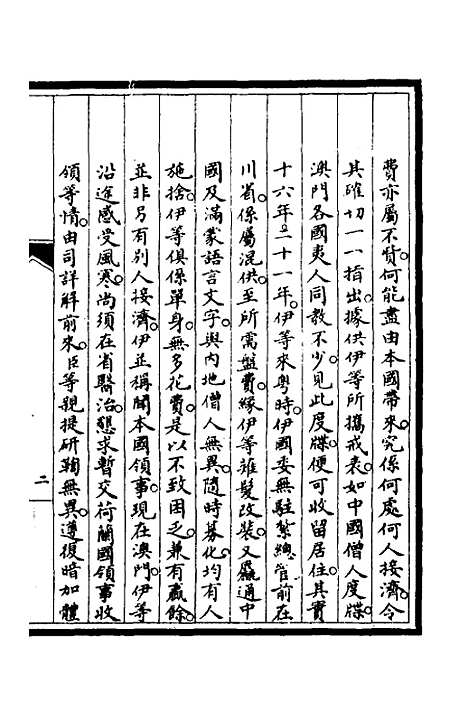 費亦屬不貲何能盡由本國帶來究係何處何人接濟令
其確切一一指出據供伊等所攜戒表如中國僧人度牒
澳門各國夷人同教不少見此度牒便可收留居住其實
十六年二十一年伊等來粵時伊國委無駐紮總管前在
川省係屬混供至所需盤費緣伊等雉髮改裝又麤通中
國及滿蒙語言文字與內地僧人無異隨時募化均有人
施捨伊等俱係單身無多花費是以不致困乏兼有贏餘
並非另有別人接濟伊並稱聞本國領事現在澳門伊等
沿途感受風寒尚須在省醫治懇求暫交荷蘭國領事收
領等情由司詳解前來臣等親提研鞫無異遵復暗加體
二